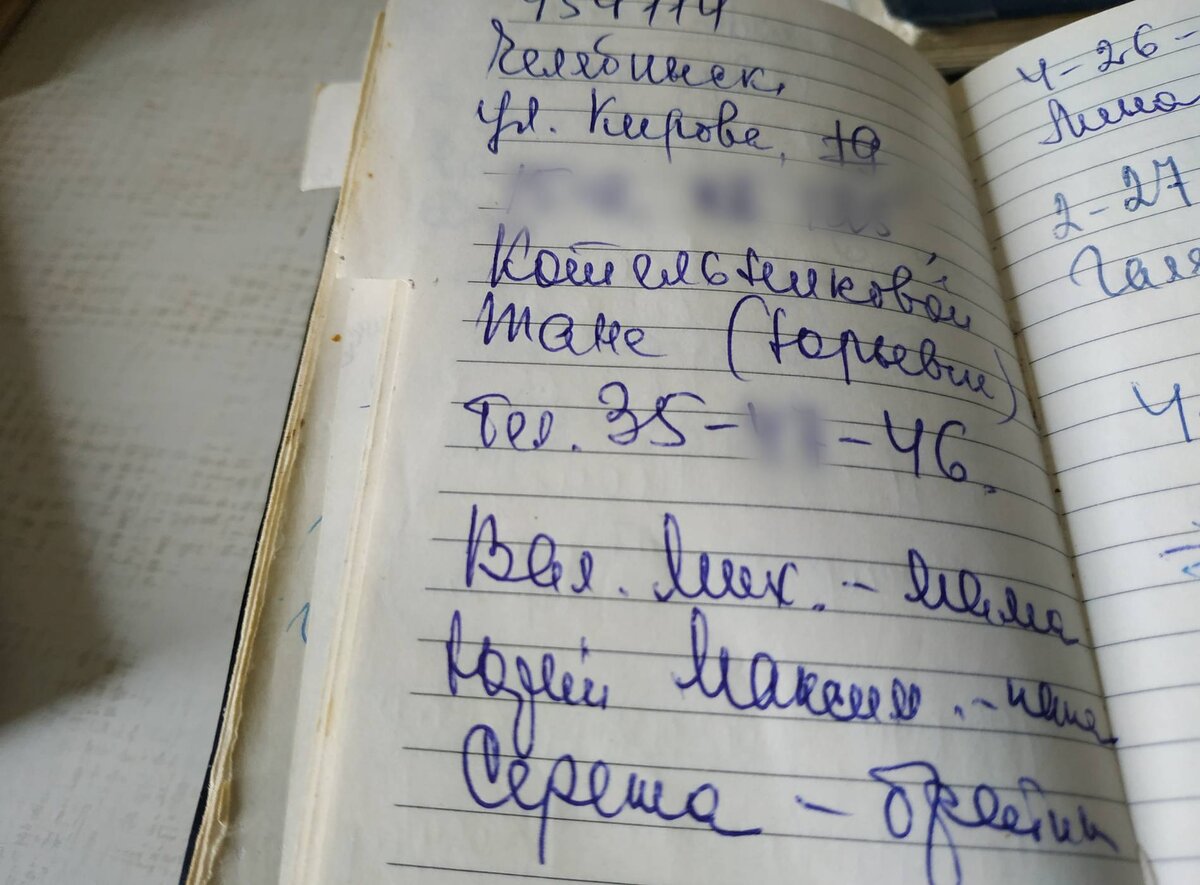 454114
Челябинск,
ул. Кирова, 10
Котельниковой
Тане (Юрьевне)
Тел. 35- -46.
Вал. Мих. - мама
Юрий Максим. - папа
Сережа - братик
4-26-
2-27
Галя
4